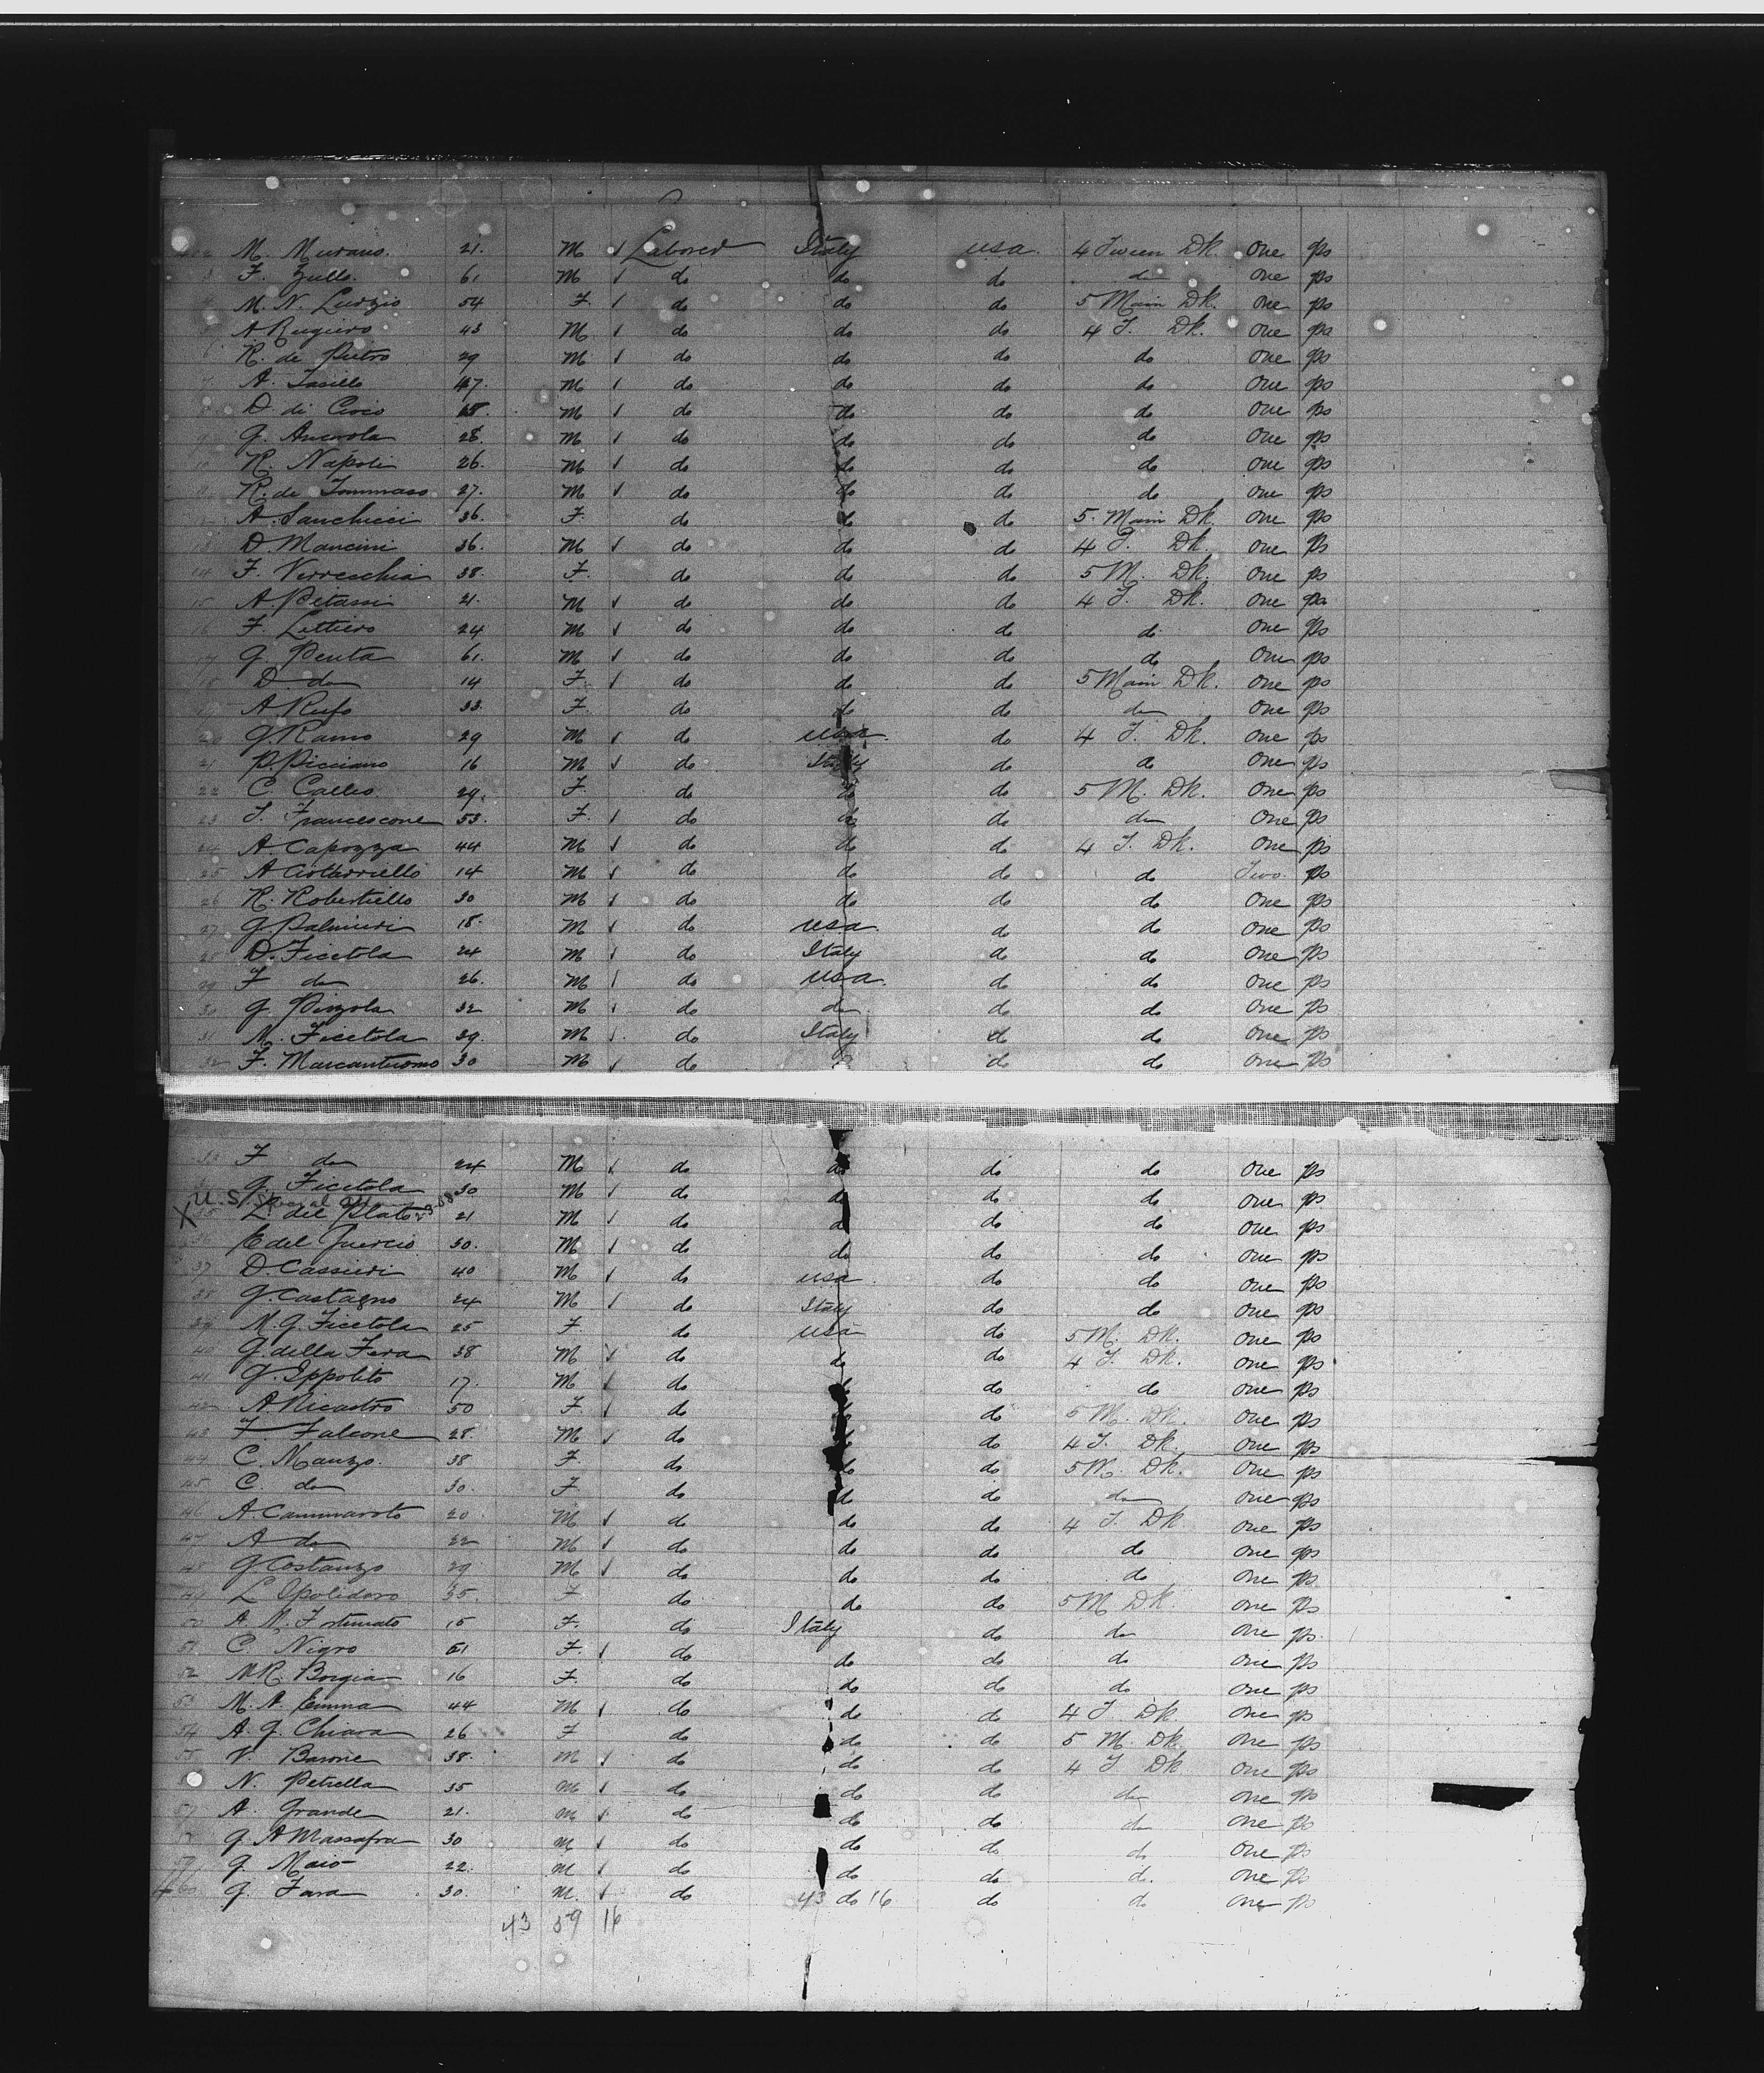 M. Murano. 21. M Laborer Italy usa. 4 Tween Dk. One ps
3 F. Zullo. 61 M do do do do One ps
4 M. N. Luozio 54 F. do do do 5 Main Dk. One ps
5 A Rugiero 43 M do do do 4 T. Dk. One ps
6 R. de Pietro 29 M do do do do One ps
7 A. Tasillo 47. M do do do do One ps
8 D. di Cicco M do do do do One ps
9 G. 28. M do do do do One ps
10 R. Napoli 26. M do do do do One ps
11 R. de Tommaso 27. M do do do do One ps
12 A. Sanchicci 36. F. do do do 5. Main Dk. One ps
13 D. Mancini 36. M do do do 4 T. Dk. One ps
14 F. Verrecchia 38. F. do do do 5 M. Dk. One ps
15 A. Petassi 21. M do do do 4 T. Dk. One ps
16 F. Lettiero 24 M do do do do One ps
17 G. Penta 61. M do do do do One ps
18 D. do 14 F. do do do 5 Main Dk. One ps
19 A Rufo 33. F. do do do do One ps
20 G. Ramo 29 M do usa. do 4 T. Dk. One ps
21 P. Picciano 16 M do Italy do do One ps
22 C. Calleo 29. F. do do do 5 M. Dk. One ps
23 T. Francescone 53. F. do do do do One ps
24 A. Capozza 44 M do do do 4 T. Dk. One ps
25 A Ciottarriello 14 M do do do do Two. ps
26 R. Robertiello 30 M do do do do One ps
27 G. Palmieri 18. M do usa do do One ps
28 D. Ficetola 24 M do Italy do do One ps
29 F do 26. M do usa. do do One ps
30 G. Pinzola 32 M do do do do One ps
31 M. Ficetola 39. M do Italy do do One ps
32 F. Marcantuono 30 M do do do One ps
33 F do 24 M do do do do One ps
G. Ficetola 30 M do do do do One ps
X U.S.
35 L. del Plato 21 M do do do do One ps
36 E del Guercio 30. M do do do do One ps
37 D. Cassieri 40 M do usa do do One ps
38 G. Castagno 24 M do Italy do do One ps
39 M. G. Ficetola 25 F. do usa do 5 M. Dk. One ps
40 G. della Fera 38 M do do do 4 T. Dk. One ps
41 G. Ippolito 17. M do do do do One ps
42 A. Nicastro 50 F. do do do 5 M. Dk. One ps
43 F. Falcone 28. M do do do 4 T. Dk. One ps
44 C. Manzo. 38 F. do do do 5 M. Dk. One ps
45 C. do 30. F. do do do do One ps
46 A. Cammaroto 20 M do do do 4 T. Dk. One ps
47 A do 22 M do do do do One ps
48 G. Costanzo 29 M do do do do One ps
49 L Ipolidoro 35. F do do do 5 M Dk. One ps
50 A. M. Fortunato 15 F. do Italy do do One ps.
51 C. Nigro 51 F. do do do do One ps
52 M R. Borgia 16 F. do do do do One ps
53 M. A. Emma 44 M do do do 4 T. Dk. One ps
54 A. G. Chiara 26 F do do do 5 M. Dk. One ps
55 V. Barone 38. M do do do 4 T Dk One ps
N. Petrella 35 M do do do do One ps
57 A. Grande 21. M do do do do One ps
58 G. A Massafra 30 M do do do do One ps
59 G. Maio 22. M do do do do. One ps
60 G. Fara 30. M. do 43 do 16 do do One ps
43 59 16